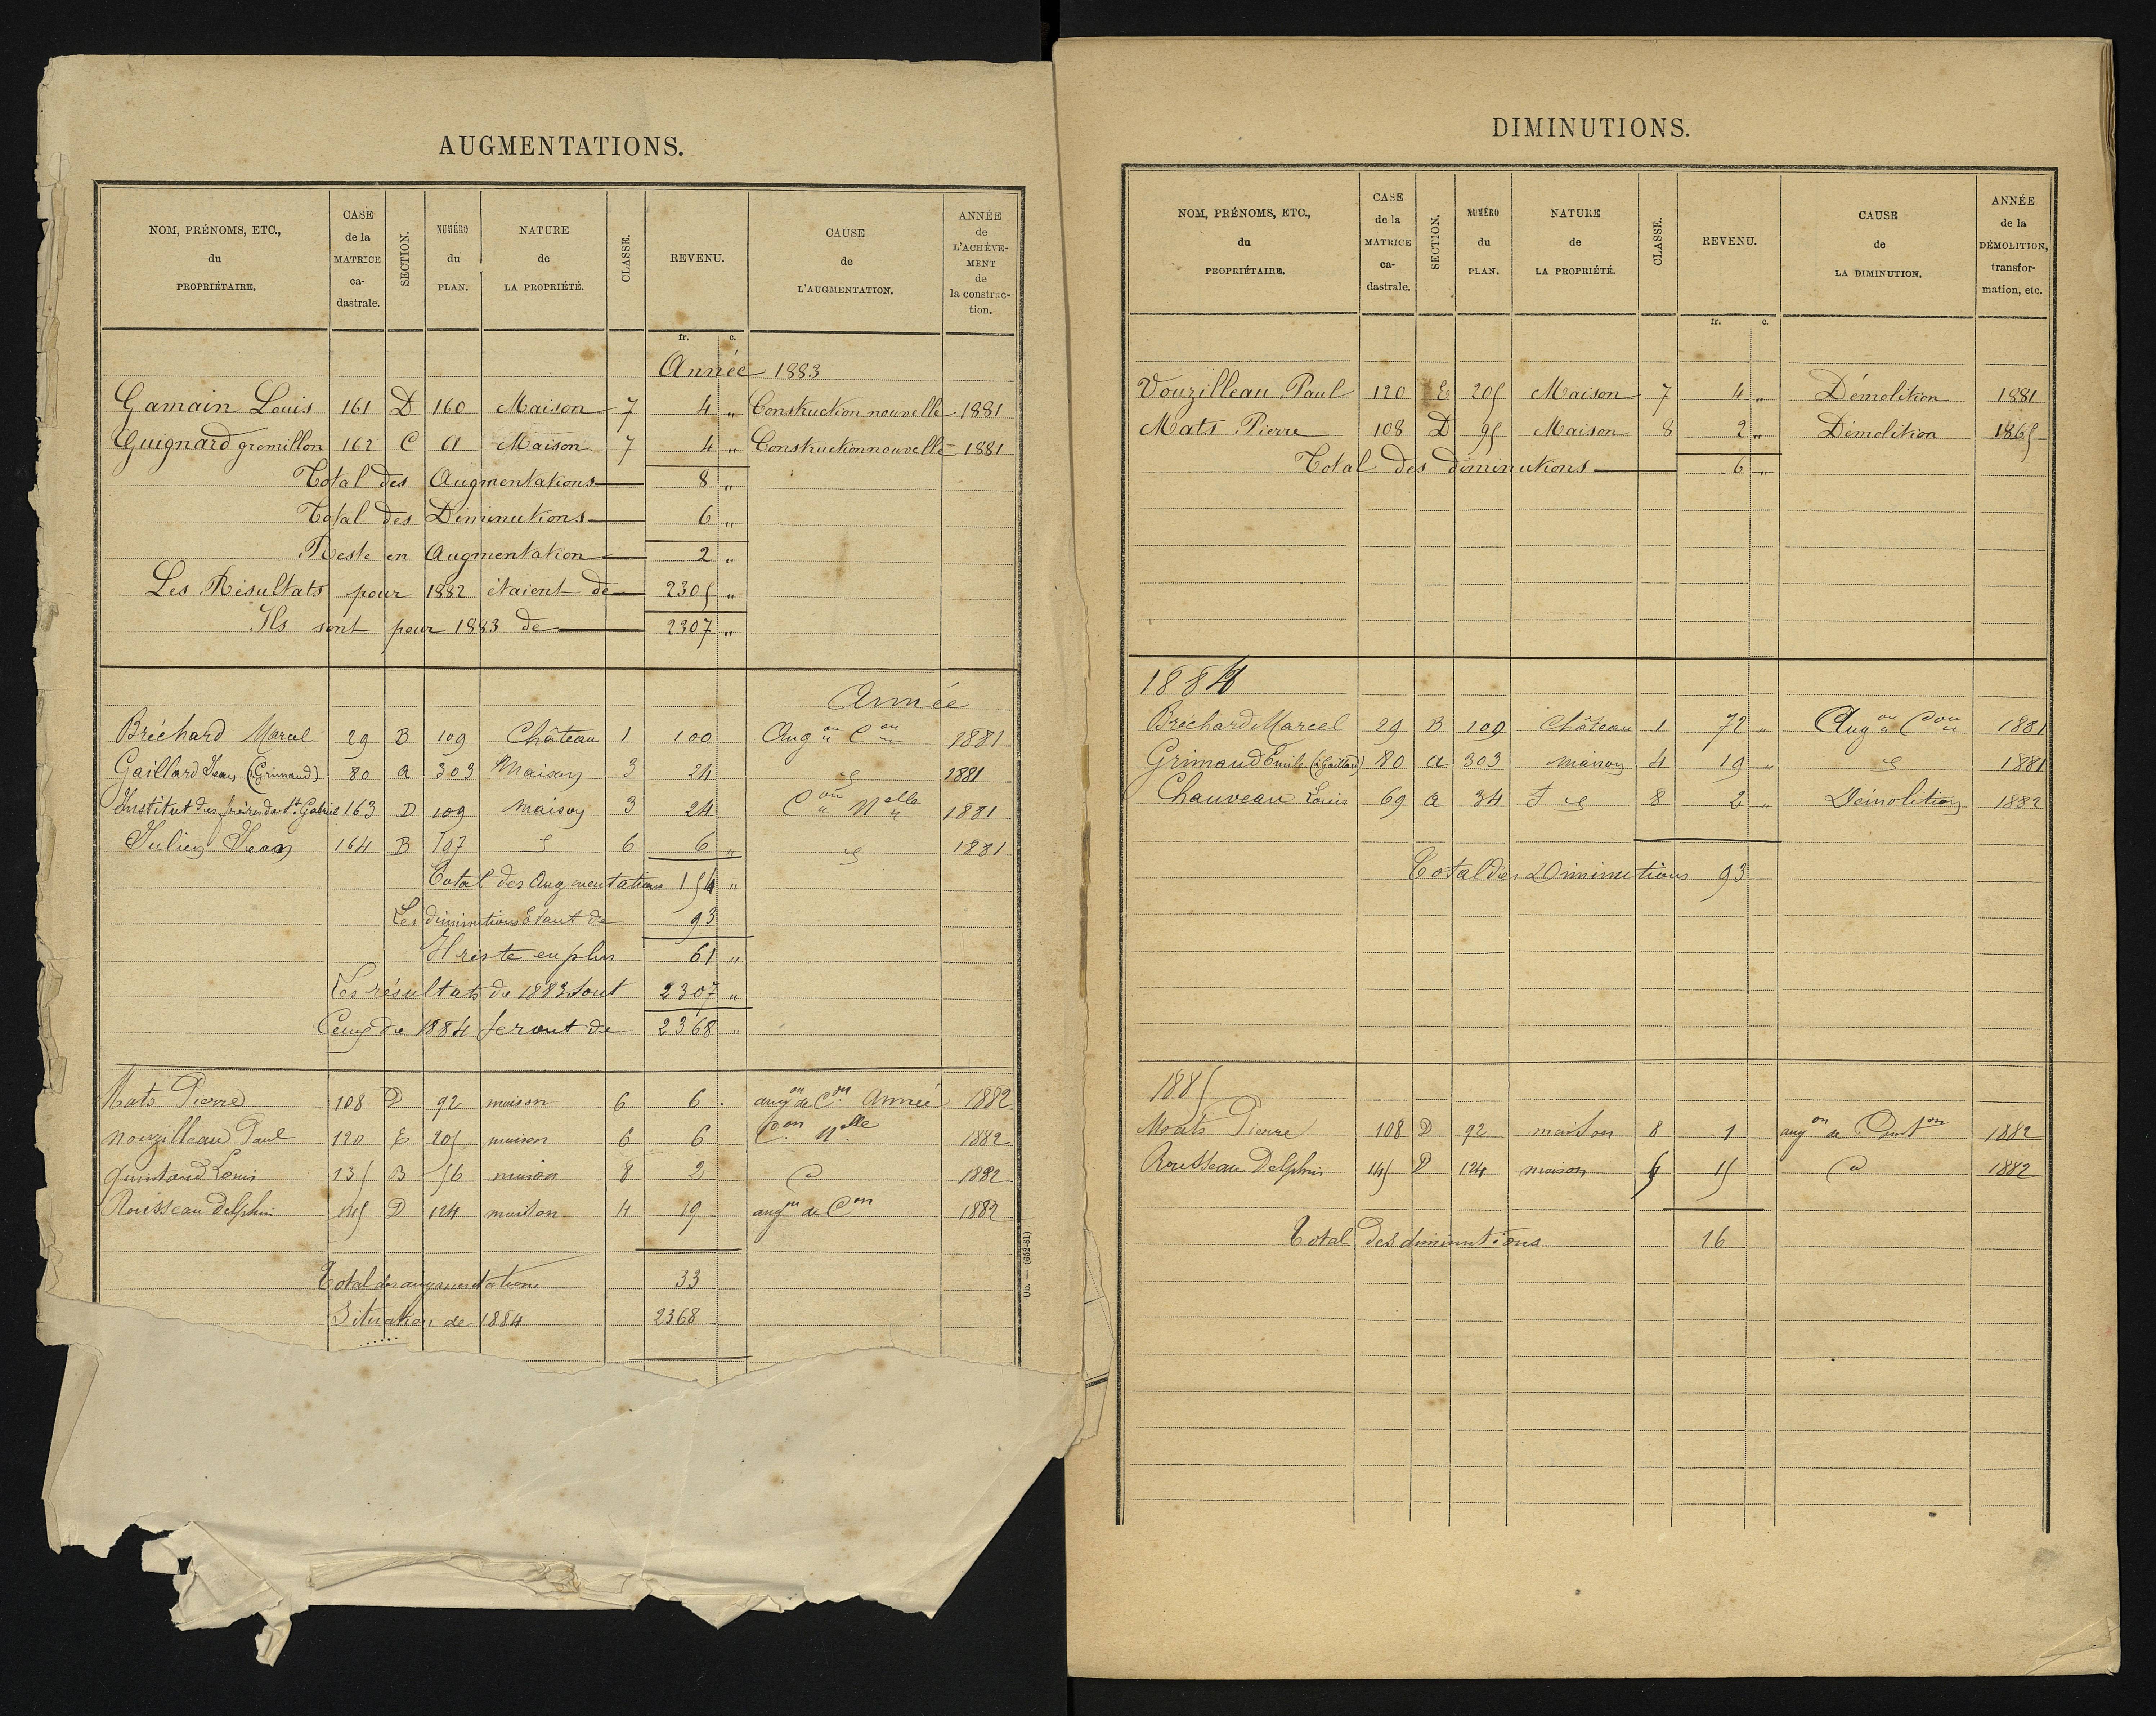 AUGMENTATIONS.
NOM, PRÉNOMS, ETC., du PROPRIÉTAIRE. CASE de la MATRICE ca- dastrale. SECTION. NUMÉRO du PLAN. NATURE de LA PROPRIÉTÉ. CLASSE. REVENU. CAUSE de L'AUGMENTATION. ANNÉE de L'ACHÈVE- MENT de la construc- tion.
fr. c.
Année 1883
Gamain Louis 161 D 160 Maison 7 4 „ Construction nouvelle 1881
Guignard gremillon 162 C 61 Maison 7 4 „ Construction nouvelle 1881
Total des Augmentations 8 „
Total des Diminutions 6 „
Reste en Augmentation 2 „
Les Résultats pour 1882 étaient de 2305 „
Ils sont pour 1883 de 2307 „
Année
Bréchard Marcel 29 B 109 Château 1 100 Aug on C on 1881
Gaillard Jean (Grimaud) 80 a 303 Maison 3 24 1881
Institut des frères de St Gabriel 163 D 109 Maison 3 24 C on Nelle 1881
Julien Jean 164 B 107 6 6 „ 1881
Total des Augmentations 154 „
Les diminutions étant de 93
Il reste en plus 61 „
Les résultats de 1883 sont 2307 „
Ceux de 1884 seront de 2368 „
Mats Pierre 108 D 92 maison 6 6 . augon de Con Année 1882
Nouzilleau Paul 120 E 205 maison 6 6 Con Nelle 1882
Quintard Louis 135 B 56 maison 8 2 1882
Rousseau Delphin 145 D 124 maison 4 19 augon de Con 1882
Total des augmentations 33
Situation de 1884 2368
Ob. — (652-81)
DIMINUTIONS.
NOM, PRÉNOMS, ETC., du PROPRIÉTAIRE. CASE de la MATRICE ca- dastrale. SECTION. NUMÉRO du PLAN. NATURE de LA PROPRIÉTÉ. CLASSE. REVENU. CAUSE de LA DIMINUTION. ANNÉE de la DÉMOLITION, transfor- mation, etc.
fr. c.
Vouzilleau Paul 120 E 205 Maison 7 4 „ Démolition 1881
Mats Pierre 108 D 95 Maison 8 2 „ Démolition 1865
Total des diminutions 6 „
1884
Bréchard Marcel 29 B 109 Château 1 72 „ Aug on Con 1881
Grimaud Emile (à Gaillard) 80 a 303 maison 4 19 „ 1881
Chauveau Louis 69 a 34 8 2 „ Démolition 1882
Total des Diminutions 93
1885
Mats Pierre 108 D 92 maison 8 1 augon de Conston 1882
Rousseau Delphin 145 D 124 maison 15 1882
Total des diminutions 16